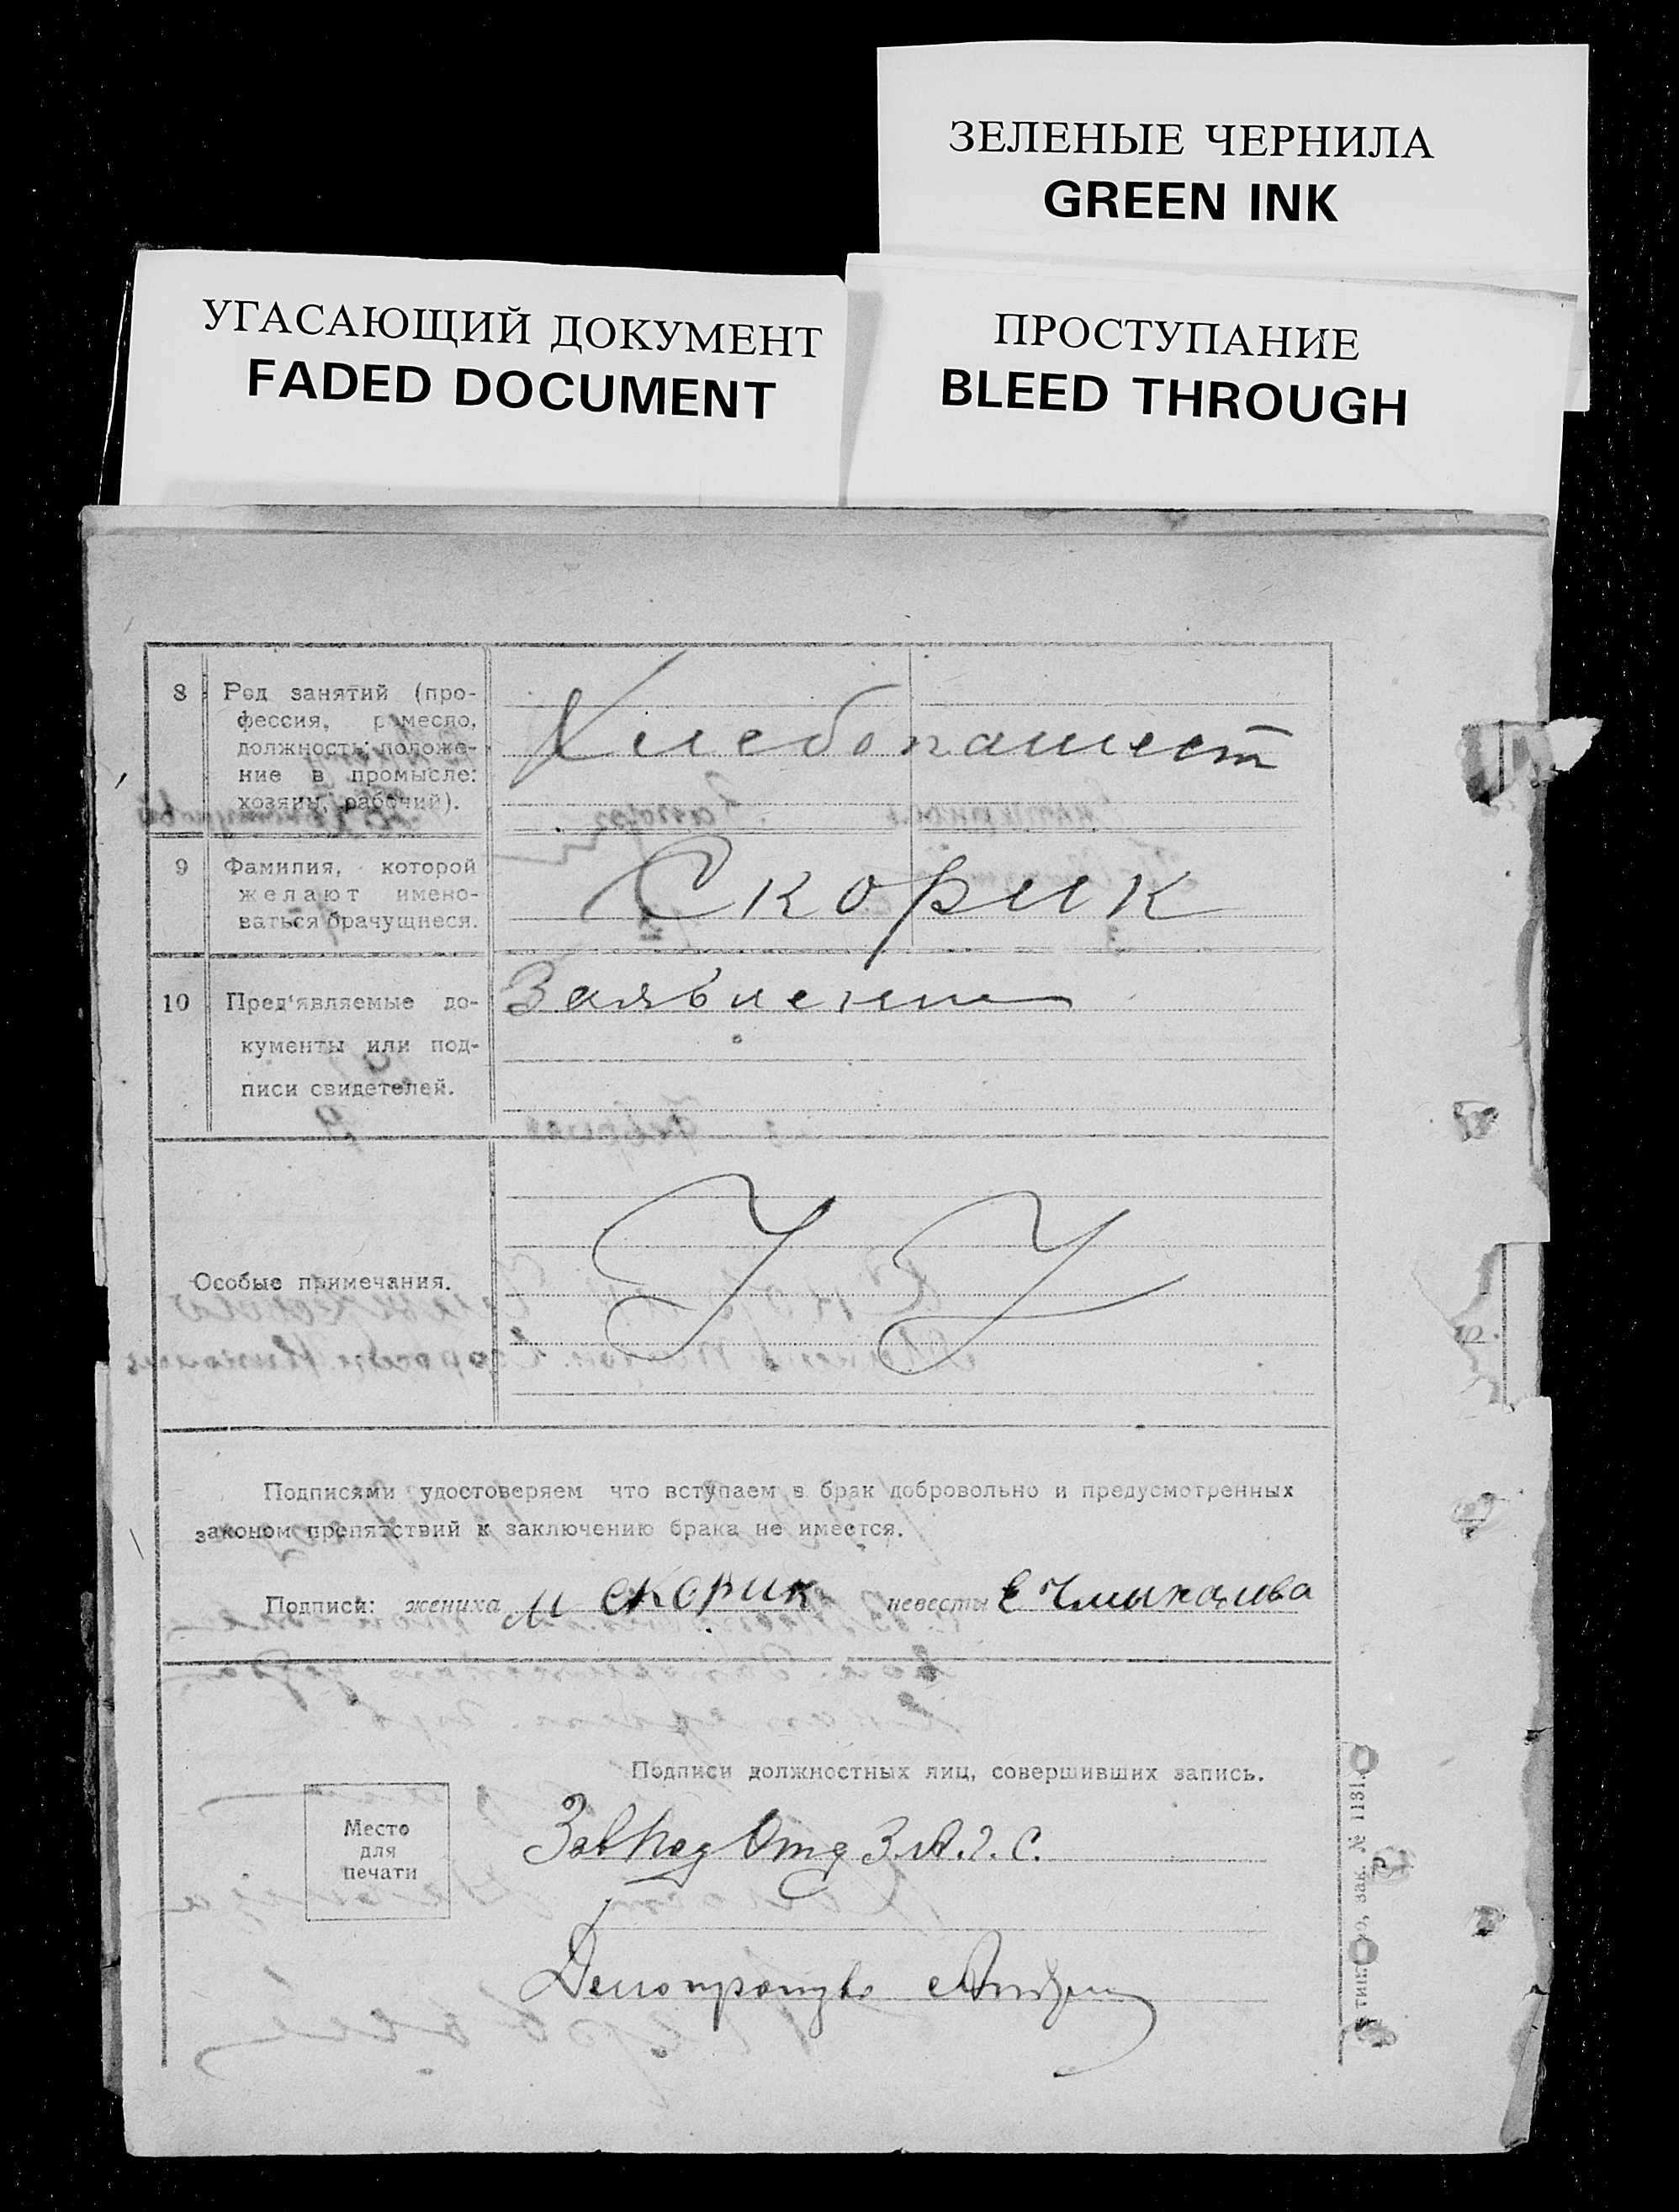 ЗЕЛЕНЫЕ ЧЕРНИЛА
GREEN INK
УГАСАЮЩИЙ ДОКУМЕНТ
FADED DOCUMENT
ПРОСТУПАНИЕ
BLEED THROUGH
8 Род занятий (про-
фессия, ремесло,
должность; положе-
ние в промысле:
хозяин, рабочий).
Хлебопашест
9 Фамилия, которой
желают имено-
ваться брачущиеся.
Скорик
10 Пред'являемые до-
кументы или под-
писи свидетелей.
Заявление
Особые примечания.
Подписями удостоверяем что вступаем в брак добровольно и предусмотренных
законом препятствий к заключению брака не имеется.
Подписи: жениха М Скорик невесты Е Чмыхалива
Подписи должностных лиц, совершивших запись.
Место
для
печати
Отд З.А.Г.С.
зак. № 1131.